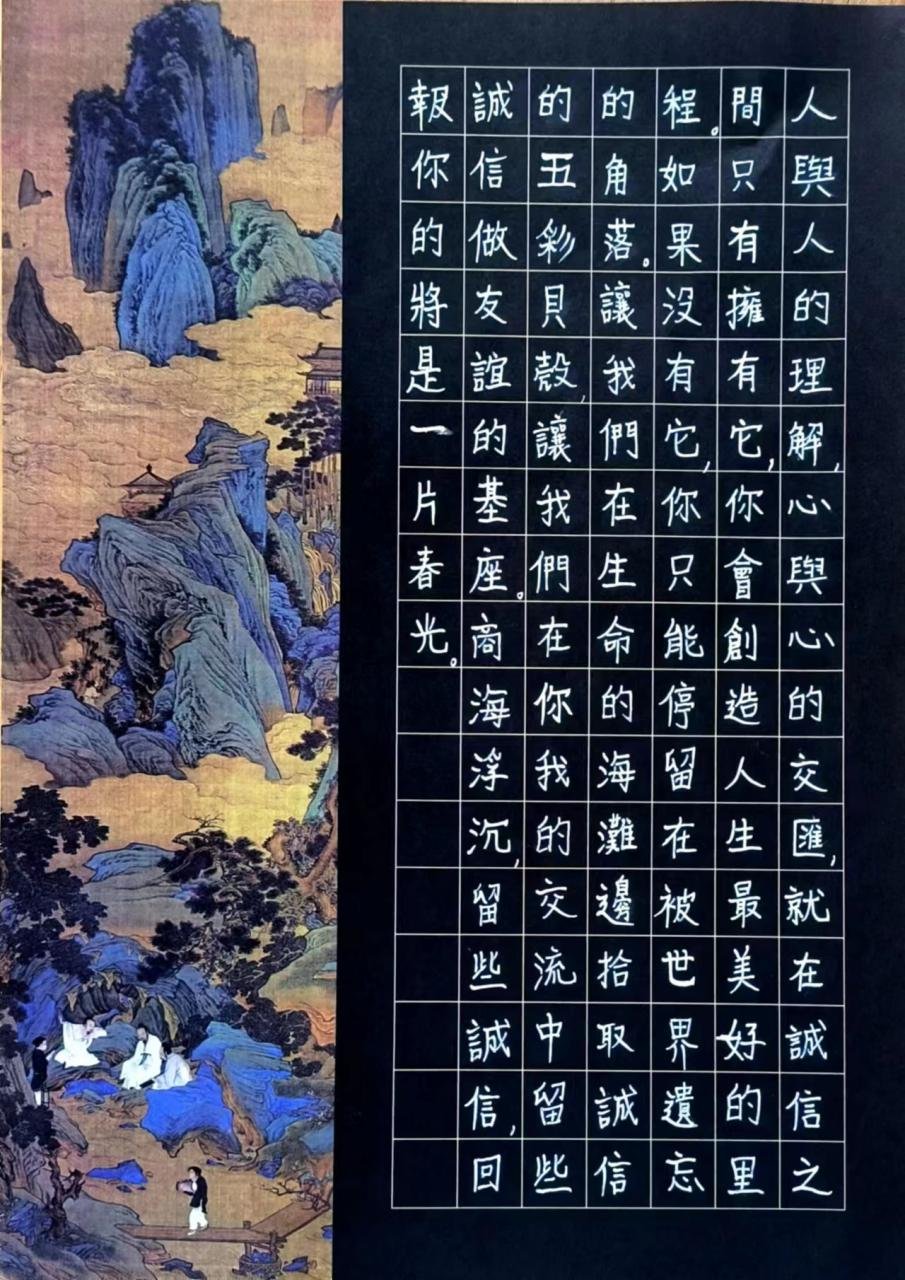 人與人的理解,心與心的交匯,就在誠信之
間只有擁有它,你會創造人生最美好的里
程。如果没有它,你只能停留在被世界遺忘
的角落。讓我們在生命的海灘邊拾取誠信
的五彩貝殼,讓我們在你我的交流中留些
誠信做友誼的基座。商海浮沉,留些誠信,回
報你的將是一片春光。